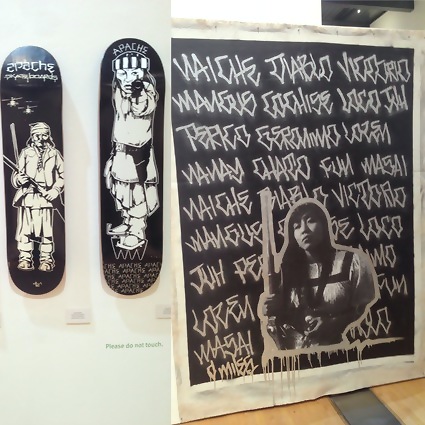 APACHE
SKATEBOARDS
APACHE
APACHE APACHE APACHE
Please do not touch.
NAICHE DIABLO VICTORIO
MANGUS COCHISE LOCO JUH
PERICO GERONIMO LOZEN
NANAY CHATO FUN MASAI
NAICHE DIABLO VICTORIO
MANGUS SE LOCO
JUH PE IMO
LOZEN FUN
MASAI
DMILES